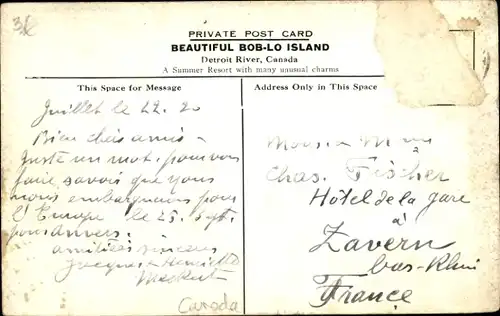 3€
PRIVATE POST CARD
BEAUTIFUL BOB-LO ISLAND
Detroit River, Canada
A Summer Resort with many unusual charms
This Space for Message
Juillet le 22. 20
Bien chers amis -
Juste un mot, pour vous
faire savoir que nous
nous embarquons pour
l'Europe le 25. Sept.
pour Anvers.
amitiés sincères
Jacques & Henriette
Canada
Address Only in This Space
Chas. Fischer
Hôtel de la Gare
à
Zavern
bas-Rhin
France